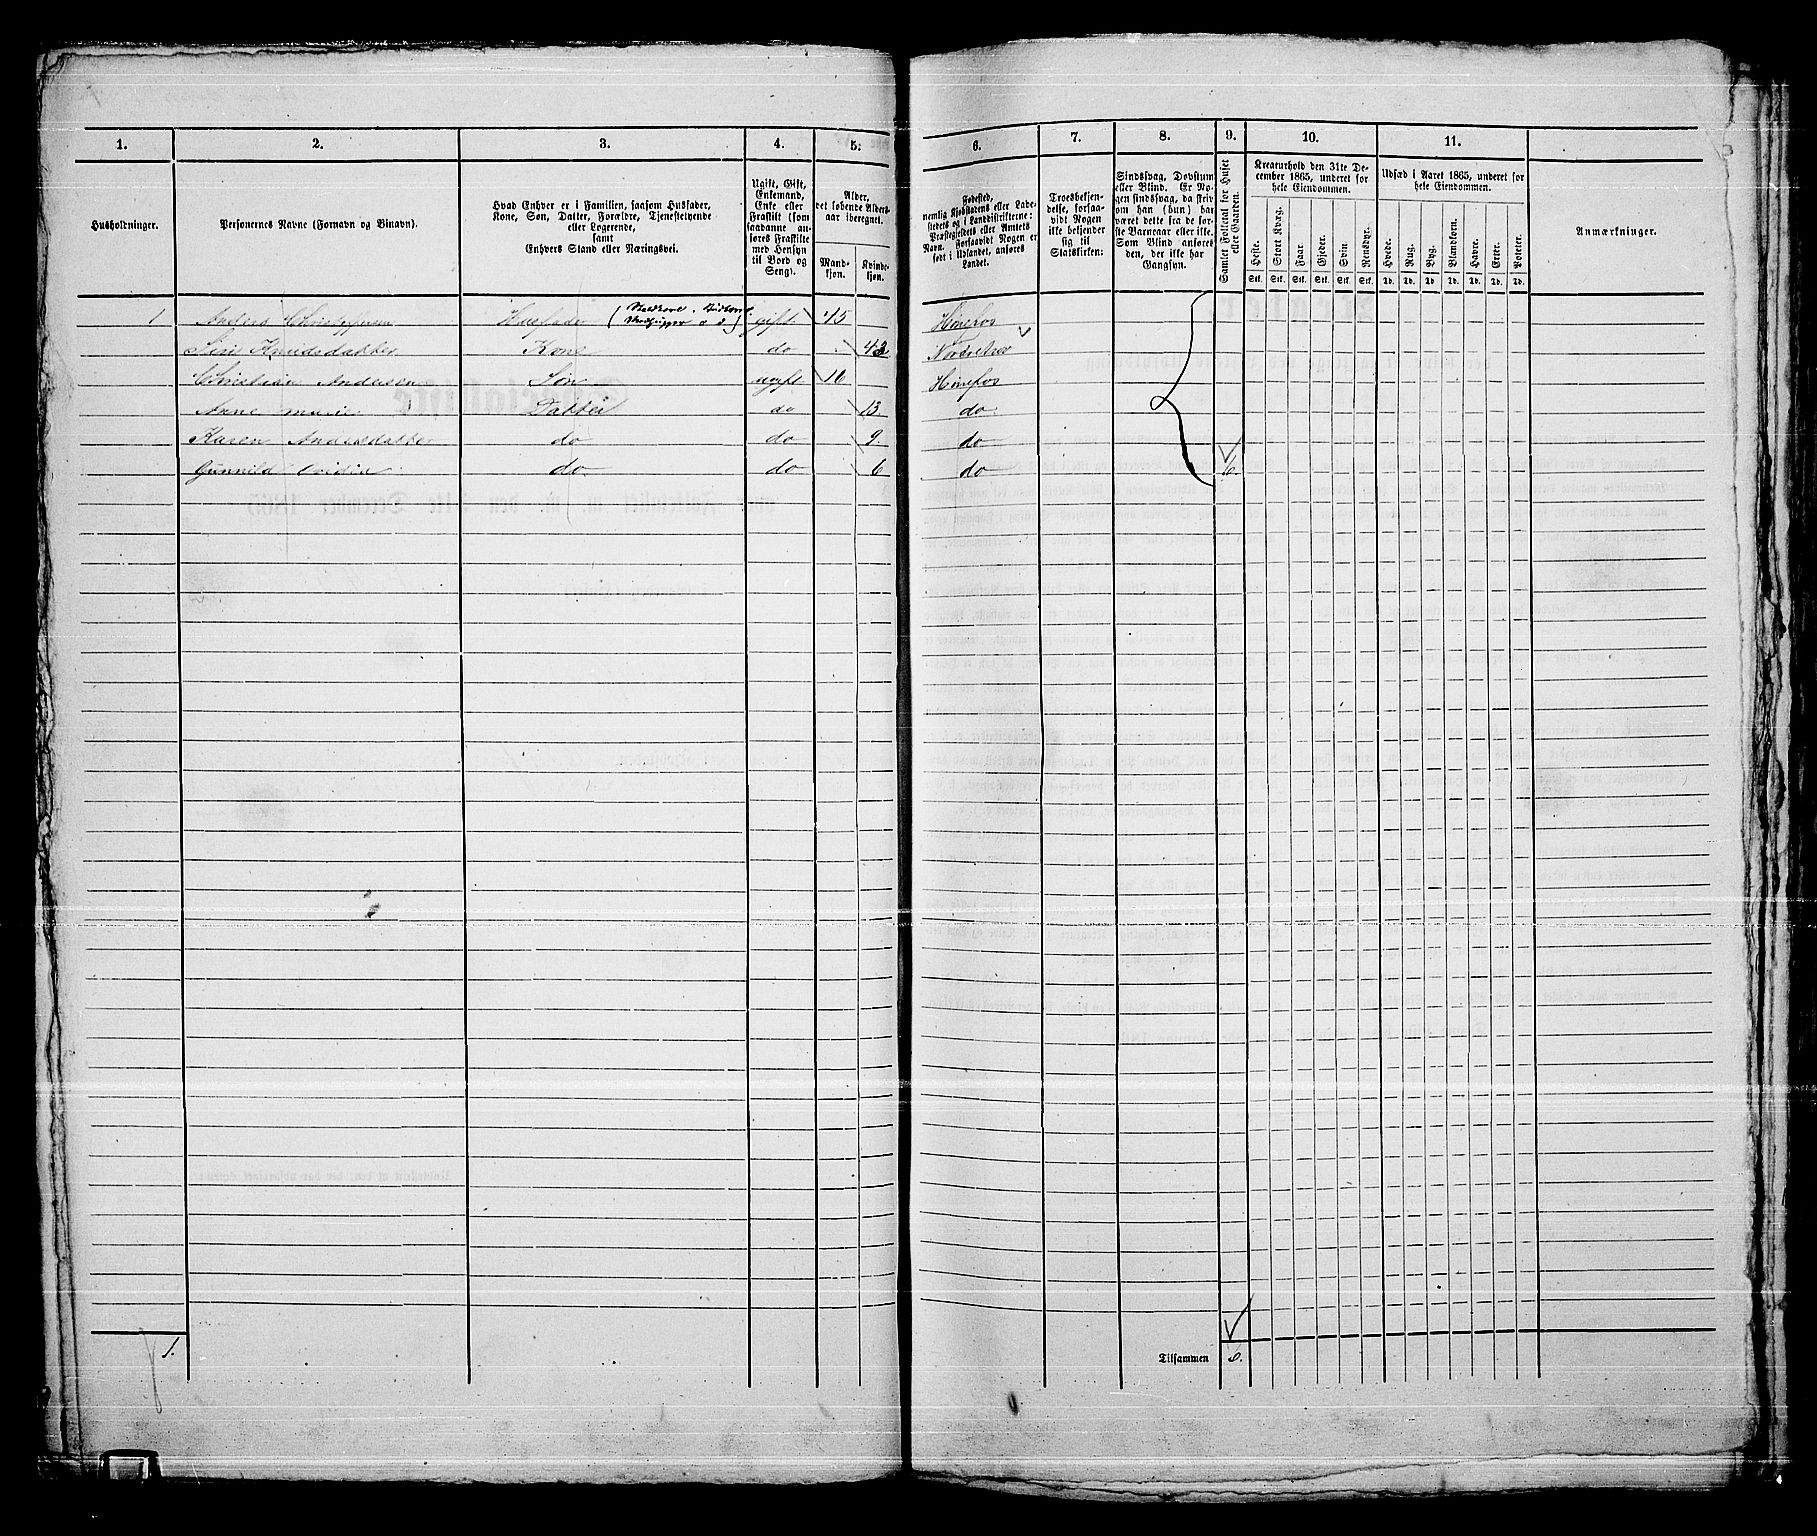 1. 2. 3. 4. 5. 6. 7. 8. 9. 10. 11.
Husholdninger.
Personernes Navne (Fornavn og Binavn).
Hvad Enhver er i Familien, saasom Husfader,
Kone, Søn, Datter, Forældre, Tjenestetyende
eller Logerende,
samt
Enhvers Stand eller Næringsvei.
Ugift, Gift,
Enkemand,
Enke eller
Fraskilt (som
saadanne an-
føres Fraskilte
med Hensyn
til Bord og
Seng).
Alder,
det løbende Alders-
aar iberegnet.
Mand-
kjøn.
Kvinde-
kjøn.
Fødested,
nemlig Kjøbstadens eller Lade-
stedets og i Landdistrikterne:
Præstegjeldets eller Amtets
Navn. Forsaavidt Nogen er
født i Udlandet, anføres
Landet.
Troesbekjen-
delse, forsaa-
vidt Nogen
ikke bekjender
sig til
Statskirken:
Sindssvag, Døvstum
eller Blind. Er No-
gen sindssvag, da skriv
om han (hun) har
været dette fra de før-
ste Barneaar eller ikke.
Som Blind anføres
den, der ikke har
Gangsyn.
Samlet Folketal for Huset
eller Gaarden.
Kreaturhold den 31te De-
cember 1865, underet for
hele Eiendommen.
Heste. Stort Kvæg. Faar. Gjeder. Svin. Rensdyr.
Stk. Stk. Stk. Stk. Stk. Stk.
Udsæd i Aaret 1865, underet for
hele Eiendommen.
Hvede. Rug. Byg. Blandkorn. Havre. Erter. Poteter.
Td. Td. Td. Td. Td. Td. Td.
Anmærkninger.
1 Anders Christophersen Husfader gift 45 Hønefos
Siri Knudsdatter Kone do 43 Norderhov
Christian Andersen Søn ugift 16 Hønefos
Anne Marie Datter do 13 do
Karen Andersdatter do do 9 do
Gunnild do do 6 do 6.
1. Tilsammen 6.